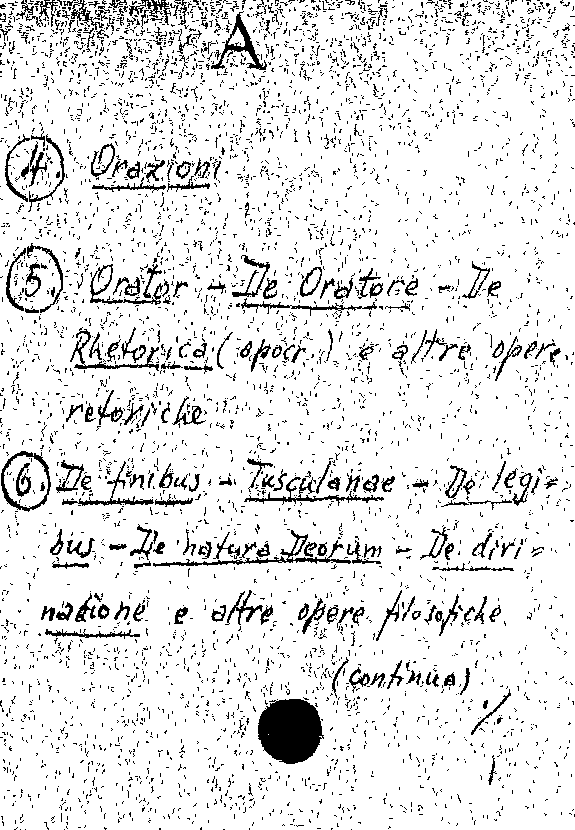 A
4. Orazioni
5. Orator - De Oratore - De
Rhetorica (apocr.) e altre opere
retoriche
6. De finibus - Tusculanae - De legi=
bus - De natura Deorum - De divi=
natione e altre opere filosofiche
(continua)
./.